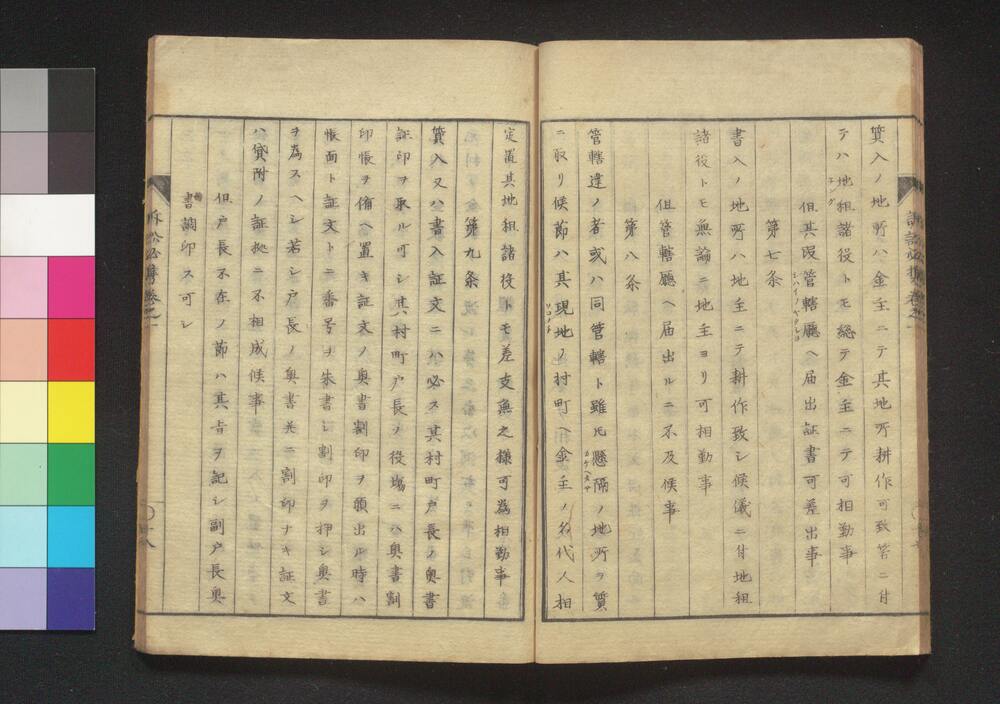 質入ノ地所ハ金主ニテ其地所耕作可致筈ニ付
テハ地租諸役トモ総テ金主ニテ可相勤事
但其段管轄廳ヘ届出証書可差出事
第七条
書入ノ地所ハ地主ニテ耕作致シ候儀ニ付地租
諸役トモ無論ニ地主ヨリ可相勤事
但管轄廳ヘ届出ルニ不及候事
第八条
管轄違ノ者或ハ同管轄ト雖モ懸隔ノ地所ヲ質
ニ取リ候節ハ其現地ノ村町ヘ金主ノ名代人相
定置其地租諸役トモ差支無之様可為相勤事
第九条
質入又ハ書入証文ニハ必ス其村町戸長ノ奥書
証印ヲ取ル可シ其村町戸長ノ役場ニハ奥書割
印帳ヲ備ヘ置キ証文ノ奥書割印ヲ願出ル時ハ
帳面ト証文トニ番号ヲ朱書シ割印ヲ押シ奥書
ヲ為スヘシ若シ戸長ノ奥書並ニ割印ナキ証文
ハ貸附ノ証拠ニ不相成候事
但戸長不在ノ節ハ其旨ヲ記シ副戸長奥
書調印ス可シ
訴訟必携巻之一